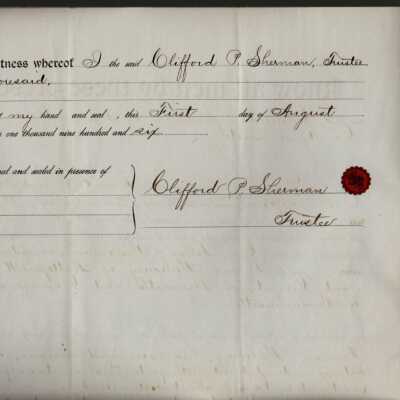 tness whereof I the said Clifford P. Sherman, Trustee
oresaid,
my hand and seal, this First day of August
one thousand nine hundred and six
and sealed in presence of
Clifford P. Sherman
Trustee